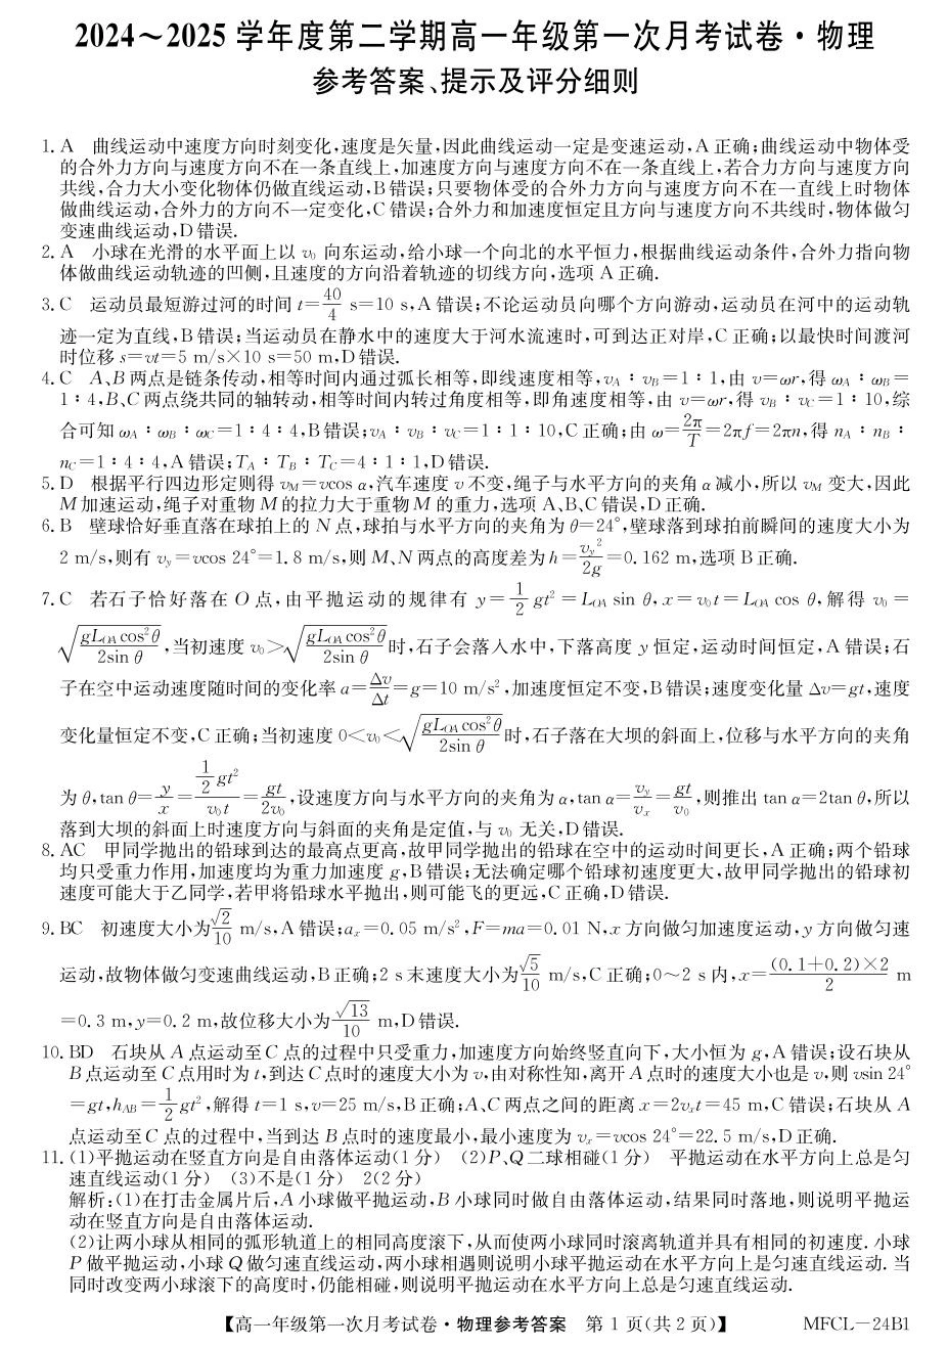 2024～2025学年度第二学期高一年级第一次月考试卷·物理
参考答案、提示及评分细则
1. A 曲线运动中速度方向时刻变化,速度是矢量,因此曲线运动一定是变速运动,A 正确;曲线运动中物体受
的合外力方向与速度方向不在一条直线上,加速度方向与速度方向不在一条直线上,若合力方向与速度方向
共线,合力大小变化物体仍做直线运动,B 错误;只要物体受的合外力方向与速度方向不在一直线上时物体
做曲线运动,合外力的方向不一定变化,C 错误;合外力和加速度恒定且方向与速度方向不共线时,物体做匀
变速曲线运动,D 错误.
2. A 小球在光滑的水平面上以 v₀ 向东运动,给小球一个向北的水平恒力,根据曲线运动条件,合外力指向物
体做曲线运动轨迹的凹侧,且速度的方向沿着轨迹的切线方向,选项 A 正确.
3. C 运动员最短游过河的时间 t=40/4 s=10 s,A 错误;不论运动员向哪个方向游动,运动员在河中的运动轨
迹一定为直线,B 错误;当运动员在静水中的速度大于河水流速时,可到达正对岸,C 正确;以最快时间渡河
时位移 s=vt=5 m/s×10 s=50 m,D 错误.
4. C A、B 两点是链条传动,相等时间内通过弧长相等,即线速度相等,v_A∶v_B=1∶1,由 v=ωr,得 ω_A∶ω_B=
1∶4,B、C 两点绕共同的轴转动,相等时间内转过角度相等,即角速度相等,由 v=ωr,得 v_B∶v_C=1∶10,综
合可知 ω_A∶ω_B∶ω_C=1∶4∶4,B 错误;v_A∶v_B∶v_C=1∶1∶10,C 正确;由 ω=2π/T=2πf=2πn,得 n_A∶n_B∶
n_C=1∶4∶4,A 错误;T_A∶T_B∶T_C=4∶1∶1,D 错误.
5. D 根据平行四边形定则得 v_M=vcos α,汽车速度 v 不变,绳子与水平方向的夹角 α 减小,所以 v_M 变大,因此
M 加速运动,绳子对重物 M 的拉力大于重物 M 的重力,选项 A、B、C 错误,D 正确.
6. B 壁球恰好垂直落在球拍上的 N 点,球拍与水平方向的夹角为 θ=24°,壁球落到球拍前瞬间的速度大小为
2 m/s,则有 v_y=vcos 24°=1.8 m/s,则 M、N 两点的高度差为 h=v_y²/2g=0.162 m,选项 B 正确.
7. C 若石子恰好落在 O 点,由平抛运动的规律有 y=1/2 gt²=L_OA sin θ,x=v₀t=L_OA cos θ,解得 v₀=
√(gL_OA cos²θ/2sin θ),当初速度 v₀>√(gL_OA cos²θ/2sin θ)时,石子会落入水中,下落高度 y 恒定,运动时间恒定,A 错误;石
子在空中运动速度随时间的变化率 a=Δv/Δt=g=10 m/s²,加速度恒定不变,B 错误;速度变化量 Δv=gt,速度
变化量恒定不变,C 正确;当初速度 0<v₀<√(gL_OA cos²θ/2sin θ)时,石子落在大坝的斜面上,位移与水平方向的夹角
为 θ,tan θ=y/x=(1/2 gt²)/v₀t=gt/2v₀,设速度方向与水平方向的夹角为 α,tan α=v_y/v_x=gt/v₀,则推出 tan α=2tan θ,所以
落到大坝的斜面上时速度方向与斜面的夹角是定值,与 v₀ 无关,D 错误.
8. AC 甲同学抛出的铅球到达的最高点更高,故甲同学抛出的铅球在空中的运动时间更长,A 正确;两个铅球
均只受重力作用,加速度均为重力加速度 g,B 错误;无法确定哪个铅球初速度更大,故甲同学抛出的铅球初
速度可能大于乙同学,若甲将铅球水平抛出,则可能飞的更远,C 正确,D 错误.
9. BC 初速度大小为√2/10 m/s,A 错误;a_x=0.05 m/s²,F=ma=0.01 N,x 方向做匀加速度运动,y 方向做匀速
运动,故物体做匀变速曲线运动,B 正确;2 s 末速度大小为√5/10 m/s,C 正确;0～2 s 内,x=(0.1+0.2)×2/2 m
=0.3 m,y=0.2 m,故位移大小为√13/10 m,D 错误.
10. BD 石块从 A 点运动至 C 点的过程中只受重力,加速度方向始终竖直向下,大小恒为 g,A 错误;设石块从
B 点运动至 C 点用时为 t,到达 C 点时的速度大小为 v,由对称性知,离开 A 点时的速度大小也是 v,则 vsin 24°
=gt,h_AB=1/2 gt²,解得 t=1 s,v=25 m/s,B 正确;A、C 两点之间的距离 x=2v_x t=45 m,C 错误;石块从 A
点运动至 C 点的过程中,当到达 B 点时的速度最小,最小速度为 v_x=vcos 24°=22.5 m/s,D 正确.
11. (1)平抛运动在竖直方向是自由落体运动(1 分) (2)P、Q 二球相碰(1 分) 平抛运动在水平方向上总是匀
速直线运动(1 分) (3)不是(1 分) 2(2 分)
解析:(1)在打击金属片后,A 小球做平抛运动,B 小球同时做自由落体运动,结果同时落地,则说明平抛运
动在竖直方向是自由落体运动.
(2)让两小球从相同的弧形轨道上的相同高度滚下,从而使两小球同时滚离轨道并具有相同的初速度. 小球
P 做平抛运动,小球 Q 做匀速直线运动,两小球相遇则说明小球平抛运动在水平方向上是匀速直线运动. 当
同时改变两小球滚下的高度时,仍能相碰,则说明平抛运动在水平方向上总是匀速直线运动.
【高一年级第一次月考试卷·物理参考答案 第 1 页(共 2 页)】 MFCL－24B1